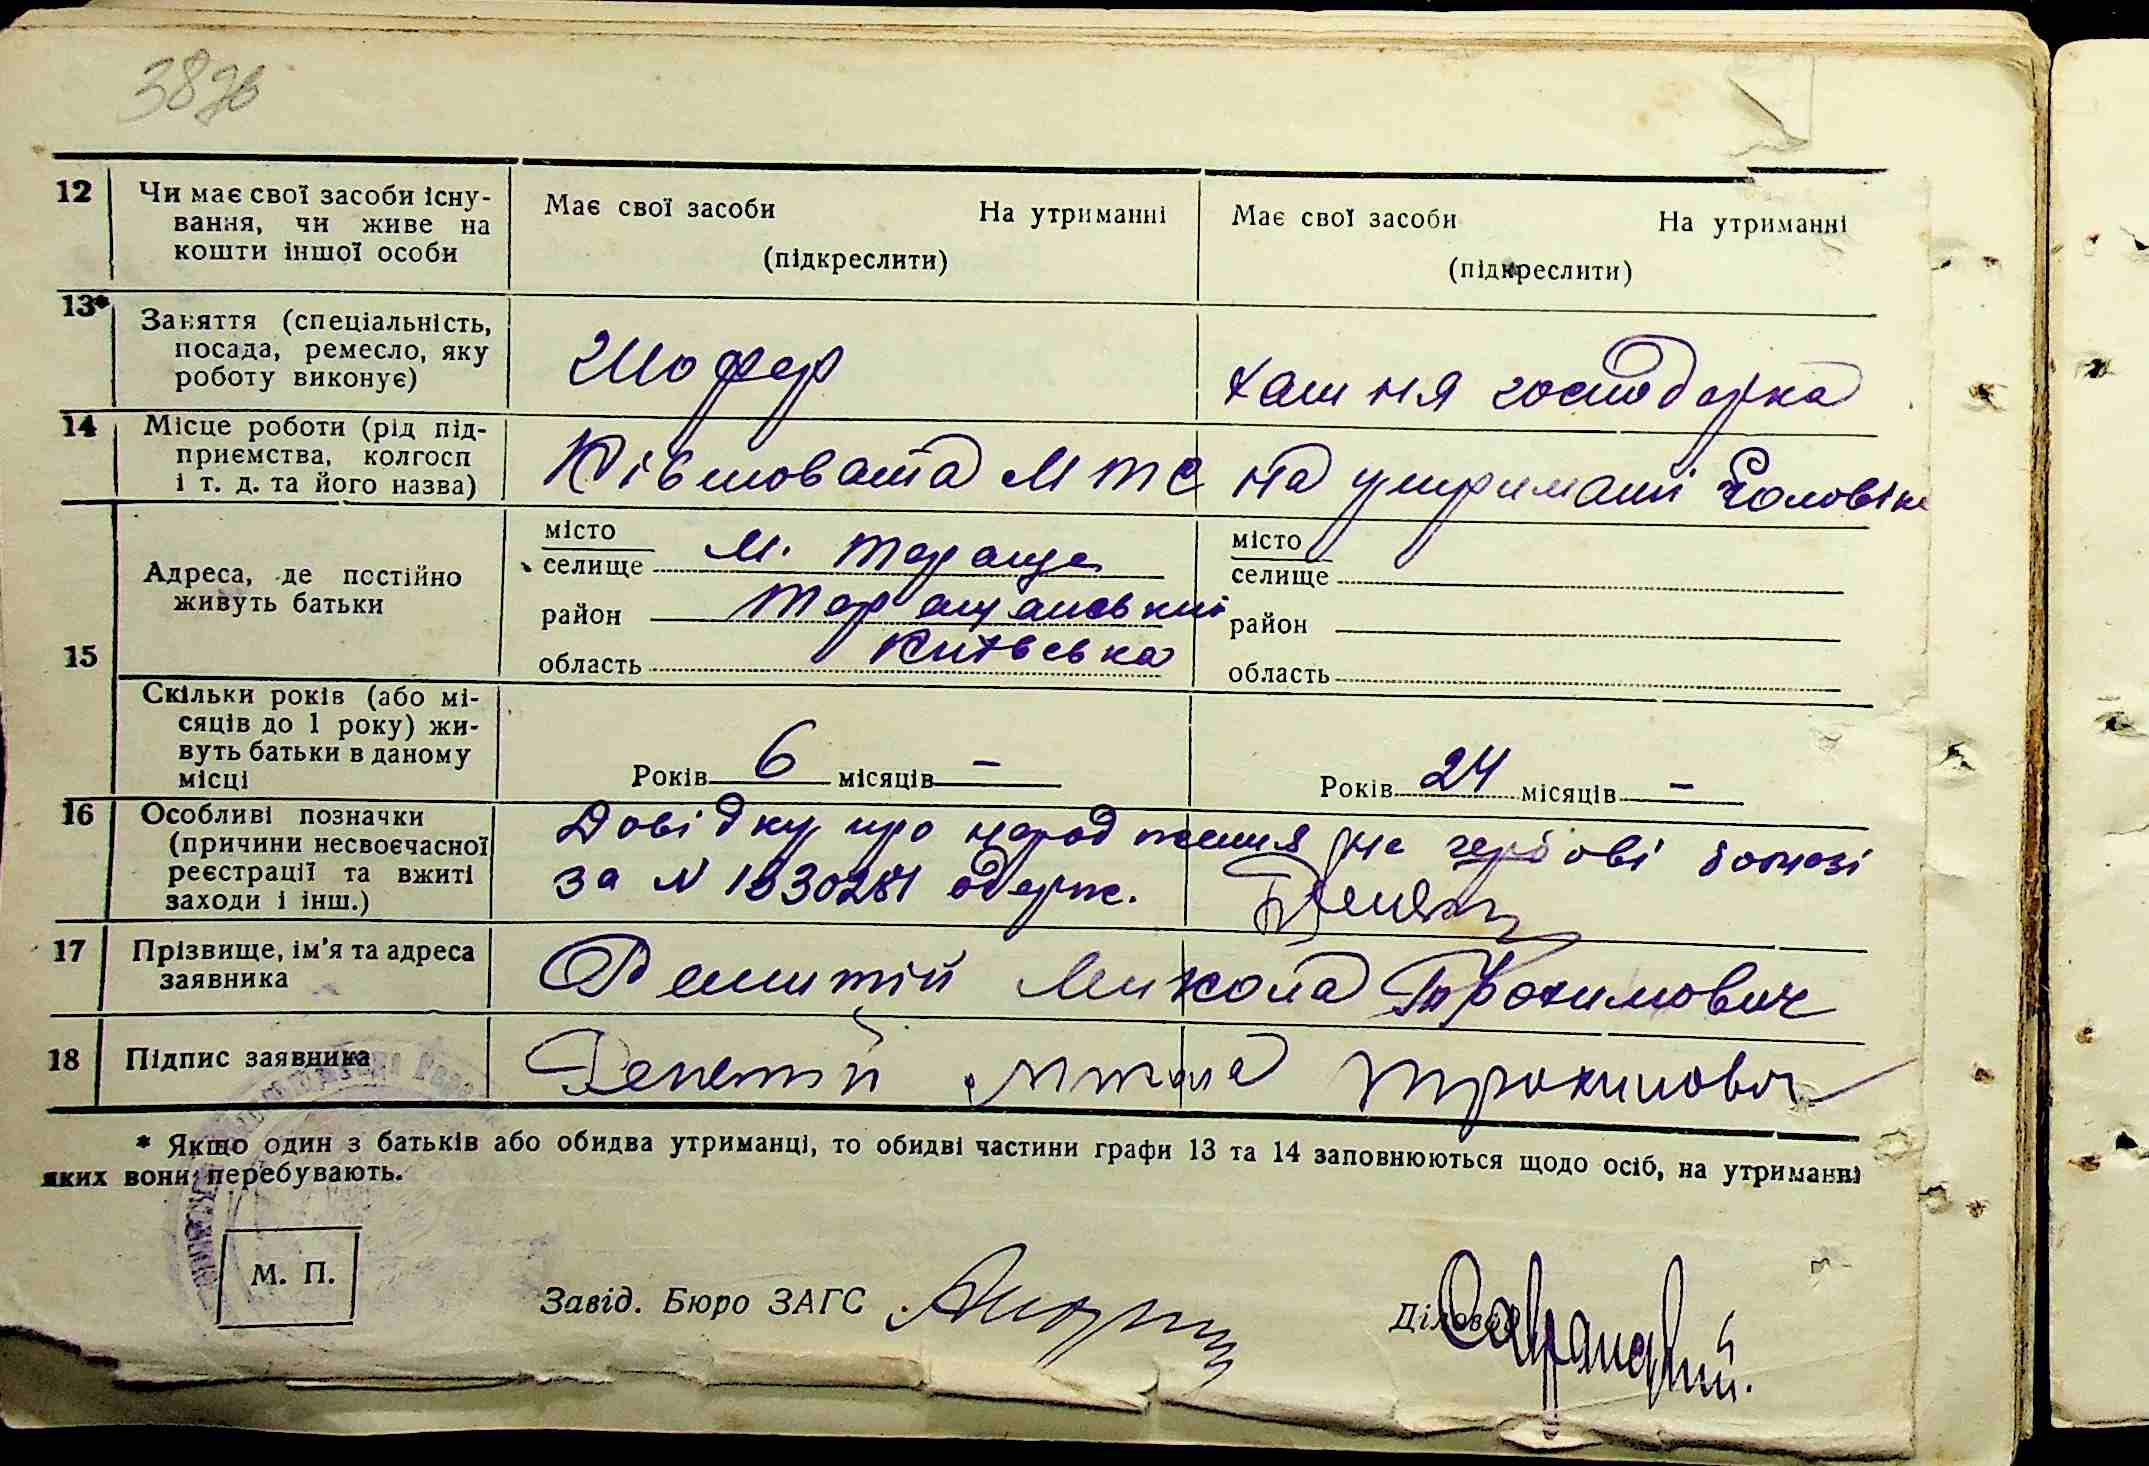 38 зв
12 Чи має свої засоби існу-
вання, чи живе на
кошти іншої особи
Має свої засоби На утриманні
(підкреслити)
Має свої засоби На утриманні
(підкреслити)
13* Заняття (спеціальність,
посада, ремесло, яку
роботу виконує)
Шофер
хатня господарка
14 Місце роботи (рід під-
приємства, колгосп
і т. д. та його назва)
Ківшовата МТС
на утриманні Чоловіка
15 Адреса, де постійно
живуть батьки
місто
селище м. Тараща
район Таращанський
область Київська
місто
селище
район
область
Скільки років (або мі-
сяців до 1 року) жи-
вуть батьки в даному
місці
Років 6 місяців –
Років 24 місяців –
16 Особливі позначки
(причини несвоєчасної
реєстрації та вжиті
заходи і інш.)
Довідку про народження на гербові бомазі
за N 1330281 одерж.
17 Прізвище, ім'я та адреса
заявника
Микола Трохимович
18 Підпис заявника
Трохимович
* Якщо один з батьків або обидва утриманці, то обидві частини графи 13 та 14 заповнюються щодо осіб, на утриманні
яких вони перебувають.
М. П.
Завід. Бюро ЗАГС
Діловод